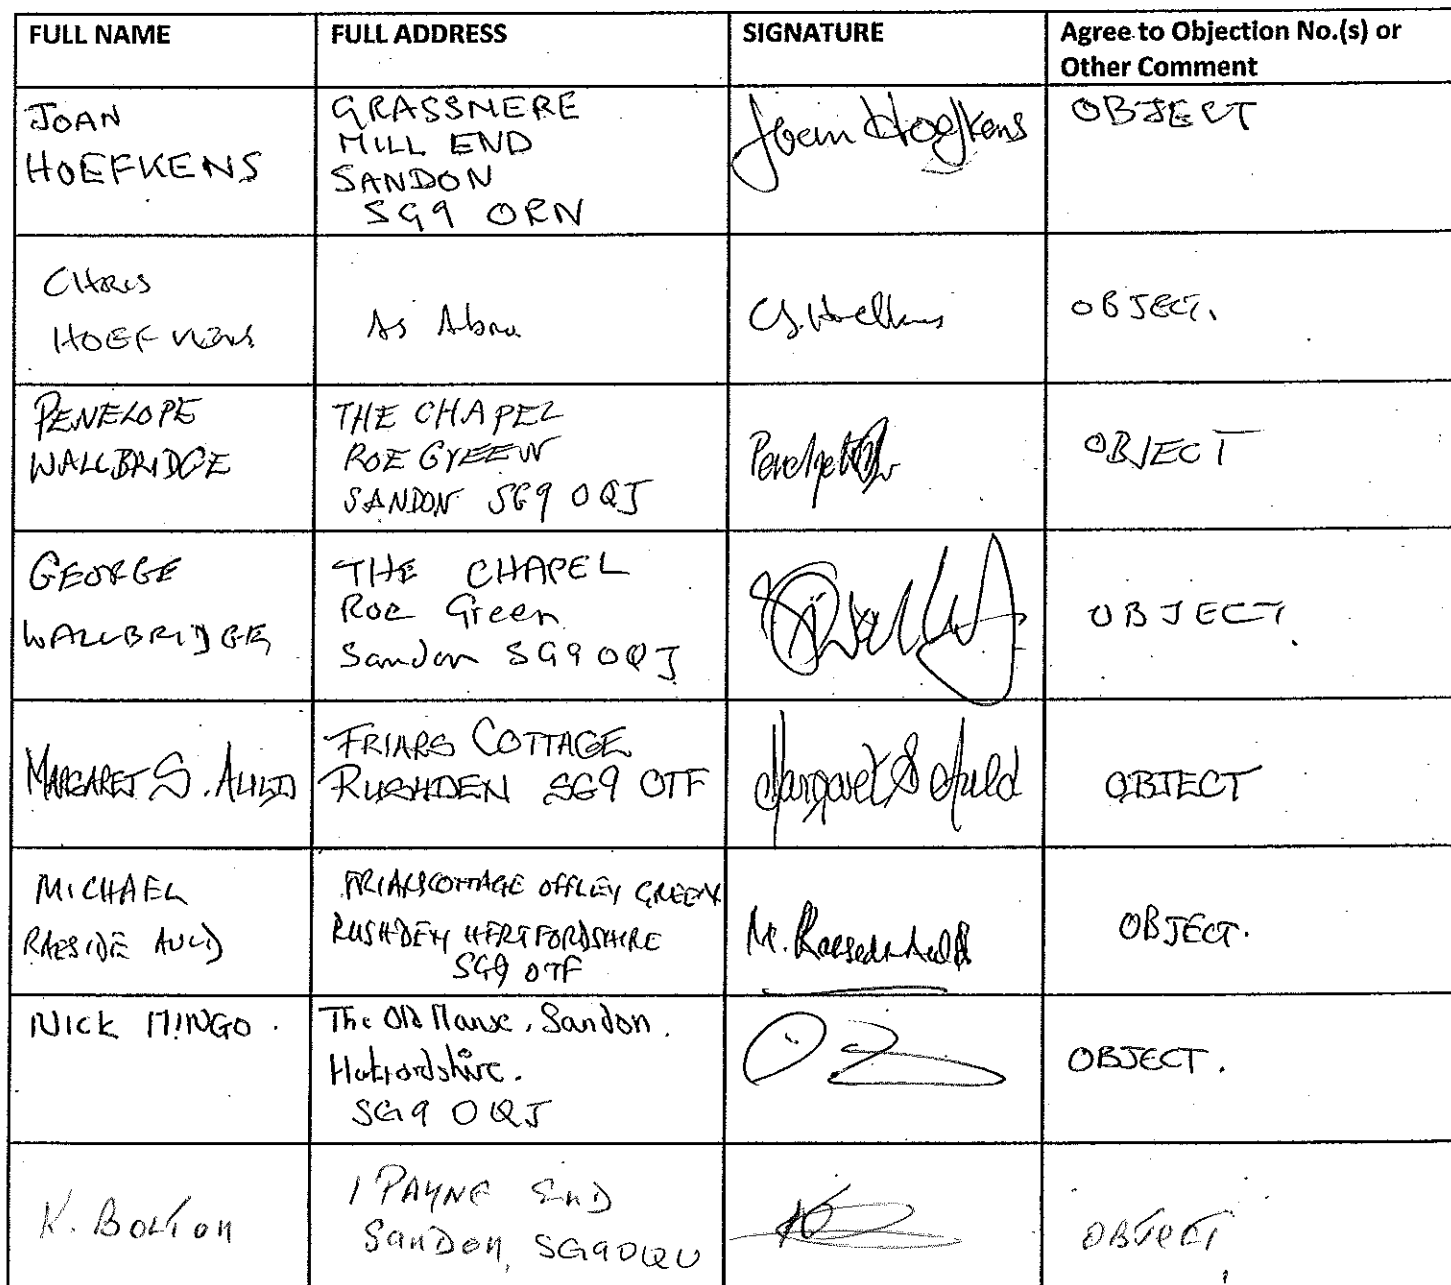 FULL NAME FULL ADDRESS SIGNATURE Agree to Objection No.(s) or
Other Comment
JOAN
HOEFKENS
GRASSMERE
MILL END
SANDON
SG9 0RN
Joan Hoefkens
OBJECT
CHRIS
HOEFKENS
As Above
OBJECT.
PENELOPE
WALLBRIDGE
THE CHAPEL
ROE GREEN
SANDON SG9 0QJ
OBJECT
GEORGE
WALLBRIDGE
THE CHAPEL
Roe Green
Sandon SG9 0QJ
OBJECT.
MARGARET S. AULD
FRIARS COTTAGE
RUSHDEN SG9 0TF
Margaret S Auld
OBJECT
MICHAEL
RAESIDE AULD
FRIARS COTTAGE OFFLEY GREEN
RUSHDEN HERTFORDSHIRE
SG9 0TF
M. Raeside Auld
OBJECT.
NICK MINGO.
The Old Manse, Sandon.
Hertfordshire.
SG9 0QJ
OBJECT.
K. BOLTON
1 PAYNE END
SANDON, SG9 0QU
OBJECT,